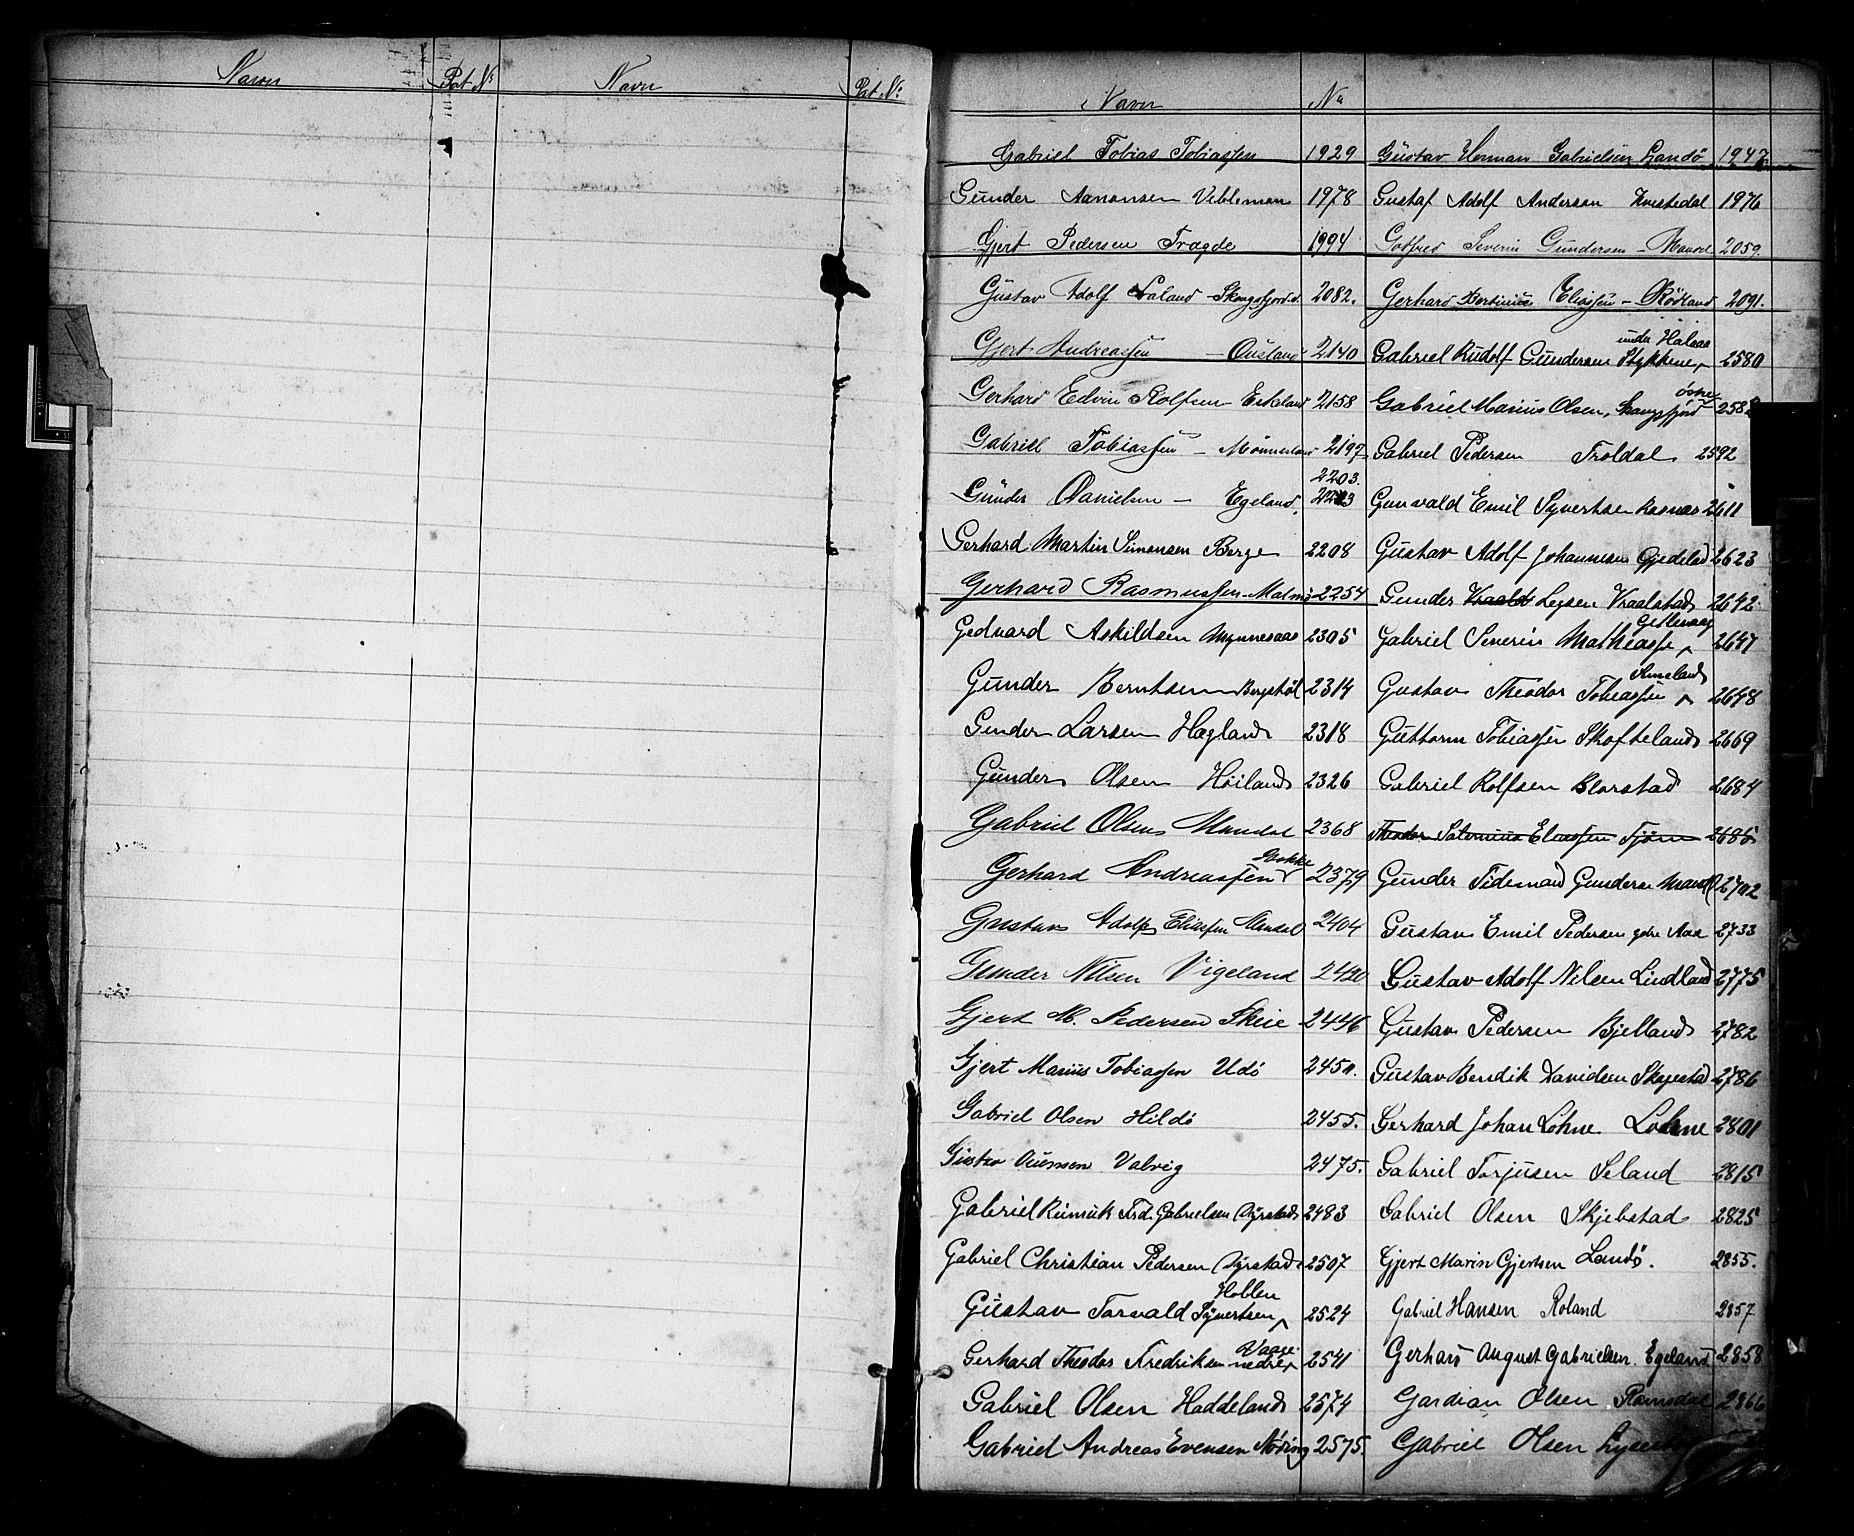 Navn Pat. Nº Navn Pat. Nº
Navn Nº
Gabriel Tobias Tobiassen 1929 Gustav Herman Gabrielsen Landö 1947
Gunder Aanonsen Vebleman 1978 Gustaf Adolf Andersen Kvistedal 1976
Gjert Pedersen Tragde 1994 Gotfred Severin Gundersen – Mandal 2059.
Gustav Adolf Laland – Skogsfjord. 2082. Gerhard Bertinius Eliassen – Rödland 2091.
Gjert Andreassen – Ousland 2140 Gabriel Rudolf Gundersen Stykkene, 2580
Gerhard Edvin Rolfsen – Eskeland 2158 Gabriel Marius Olsen, Skougsfjord övre 2582
Gabriell Tobiassen – Mönnesland 2197 Gabriel Pedersen Troldal. 2592
2203.
Gunder Danielsen – Egeland, Gunvald Emil Syvertsen Rosnæs 2611
Gerhard Martin Simonsen Berge 2208 Gustav Adolf Johannesen Gjedelad 2623
Gerhard Rasmussen – Malmö 2254 Gunder Leysen Vraalstad 2642.
Gedvard Askildsen Mynnesaas 2305 Gabriel Severin Mathiasse Getlevaag 2647
Gunder Berntsen Bergstöl 2314 Gustav Theodor Tobiassen Simeland 2648
Gunder Larsen Hægland 2318 Guttorm Tobiassen Skofteland 2669
Gunder Olsen Höiland 2326 Gabriel Rolfsen Blørstad 2684
Gabriel Olsen Mandal 2368 Theodor Salomius Eliassen Tjöm 2685
Gerhard Andreassen Stokke 2379 Gunder Tidemand Gunderse Mand 2702
Gustav Adolf Eliassen Mandal 2404 Gustav Emil Pedersen ydre Aas 2733
Gunder Nilsen Vigeland 2420 Gustav Adolf Nilsen Lindland 2775
Gjert M. Pedersen Skeie 2446 Gustav Pedersen Bjelland 2782
Gjert Marius Tobiassen Udö 2450. Gustav Bendik Davidsen Skjestad 2786
Gabriel Olsen Hildö 2455. Gerhard Johan Lohne Lohne 2801
Gustav Aumsen Valvig 2475. Gabriel Torjusen Seland 2815
Gabriel Reimick Frd. Gabrielsen Dyrstad 2483 Gabriel Olsen Skjebstad 2825
Gabriel Christian Pedersen Dyrstad 2507 Gjert Marin Gjertsen Landö. 2855.
Gustav Torvald Syvertsen Hoblen 2524 Gabriel Hansen Roland 2857
Gerhard Theodor Fredriksen Vaage nedre 2541 Gerhard August Gabrielsen. Egeland. 2858
Gabriel Olsen Haddeland 2574 Gardian Olsen Ramsdal 2866
Gabriel Andreas Evensen Nöding 2575. Gabriel Olsen